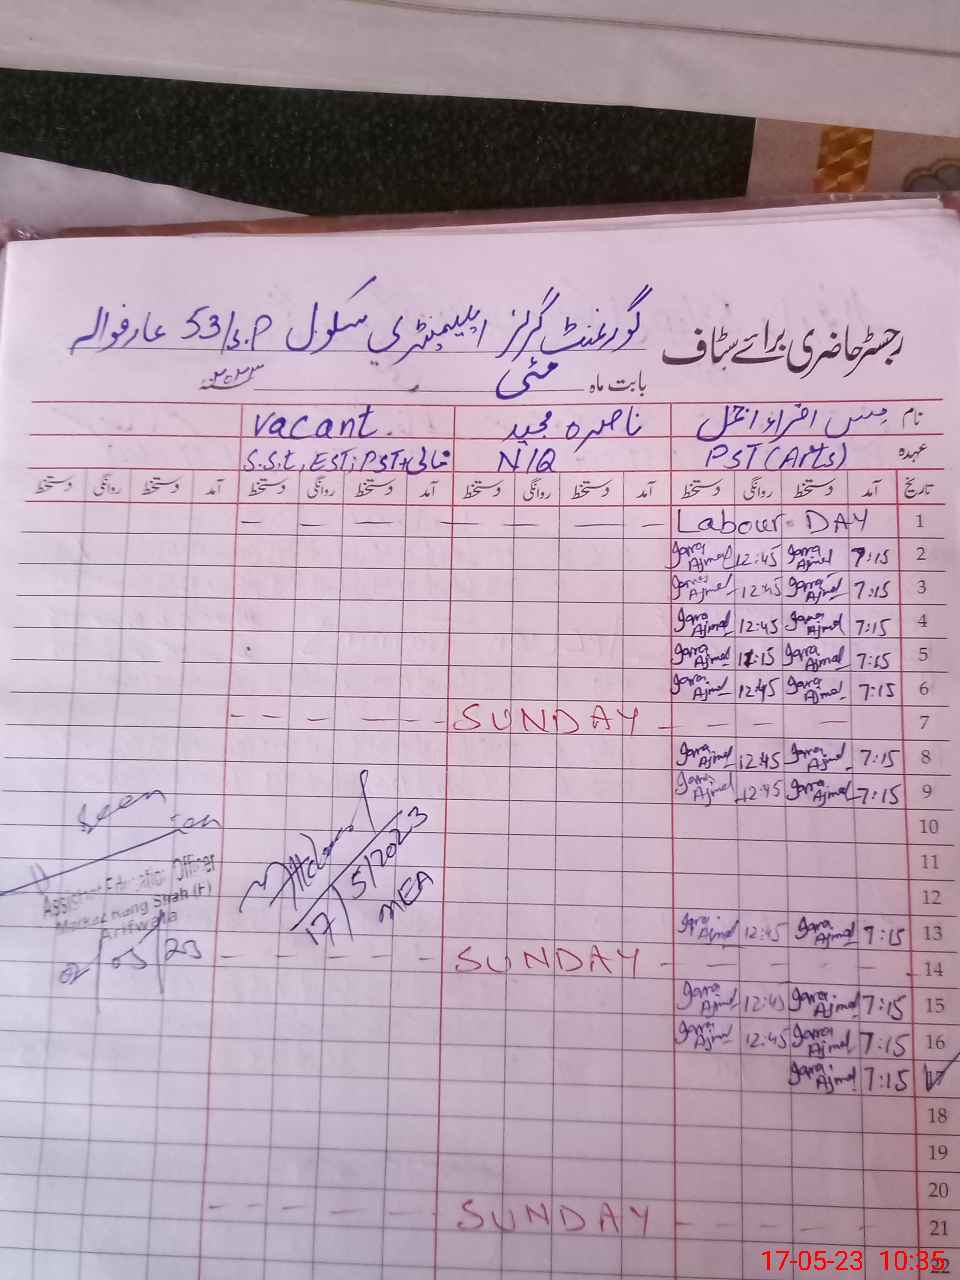 رجسٹر حاضری برائے سٹاف گورنمنٹ گرلز ایلیمنٹری سکول 53/S.P عارفوالہ
بابت ماہ مئی ۲۰۲۳
نام مس اقراء اجمل ناصرہ مجید vacant.
عہدہ PST (Arts) N/Q S.S.t, EST, PST خالی
تاریخ آمد دستخط روانگی دستخط آمد دستخط روانگی دستخط آمد دستخط روانگی دستخط آمد دستخط روانگی دستخط
1 Labour DAY
2 7:15 Iqra Ajmal 12:45 Iqra Ajmal
3 7:15 Iqra Ajmal 12:45 Iqra Ajmal
4 7:15 Iqra Ajmal 12:45 Iqra Ajmal
5 7:15 Iqra Ajmal 12:15 Iqra Ajmal
6 7:15 Iqra Ajmal 12:45 Iqra Ajmal
7 SUNDAY
8 7:15 Iqra Ajmal 12:45 Iqra Ajmal
9 7:15 Iqra Ajmal 12:45 Iqra Ajmal
10
11
12
13 7:15 Iqra Ajmal 12:45 Iqra Ajmal
14 SUNDAY
15 7:15 Iqra Ajmal 12:45 Iqra Ajmal
16 7:15 Iqra Ajmal 12:45 Iqra Ajmal
17 7:15 Iqra Ajmal
18
19
20
21 SUNDAY
22
Seen
Assistant Education Officer
Markaz Rang Shah (F)
Arifwala
02/05/23
17/5/2023
MEA
17-05-23 10:35